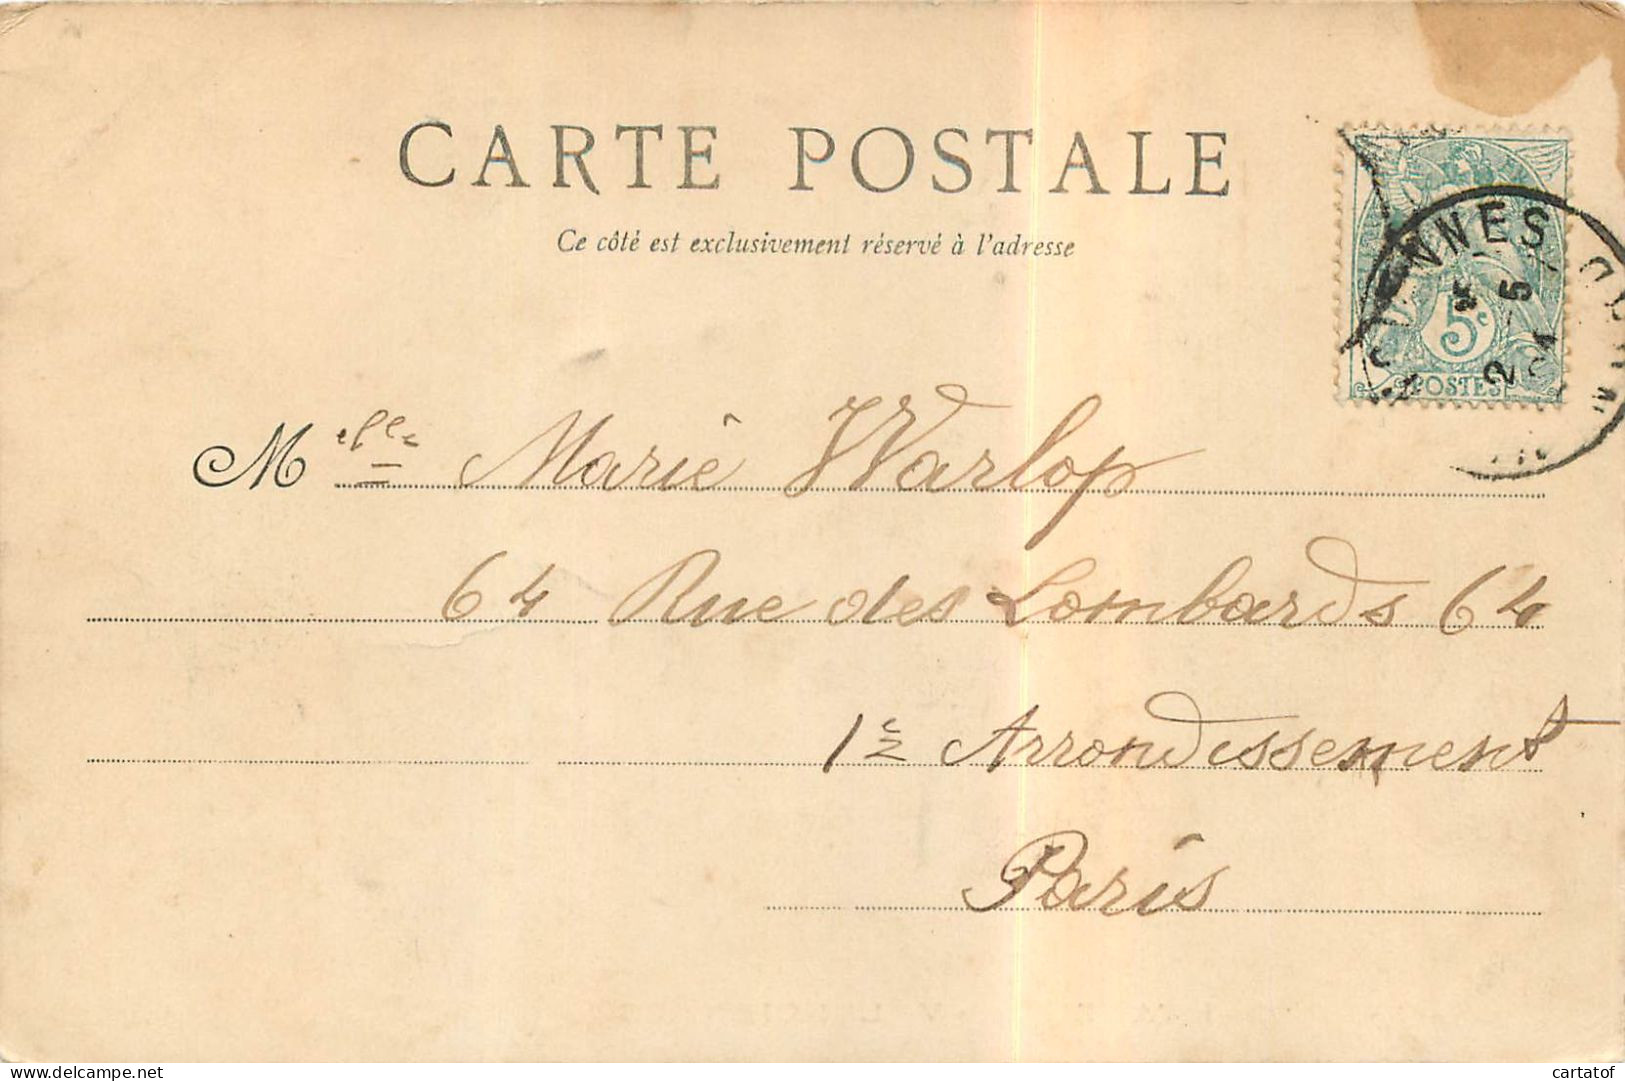 CARTE POSTALE
Ce côté est exclusivement réservé à l'adresse
5c
POSTES
NNES
2 5
Melle Marie Warlop
64 Rue des Lombards 64
1er Arrondissement
Paris
delcampe.net
cartatof